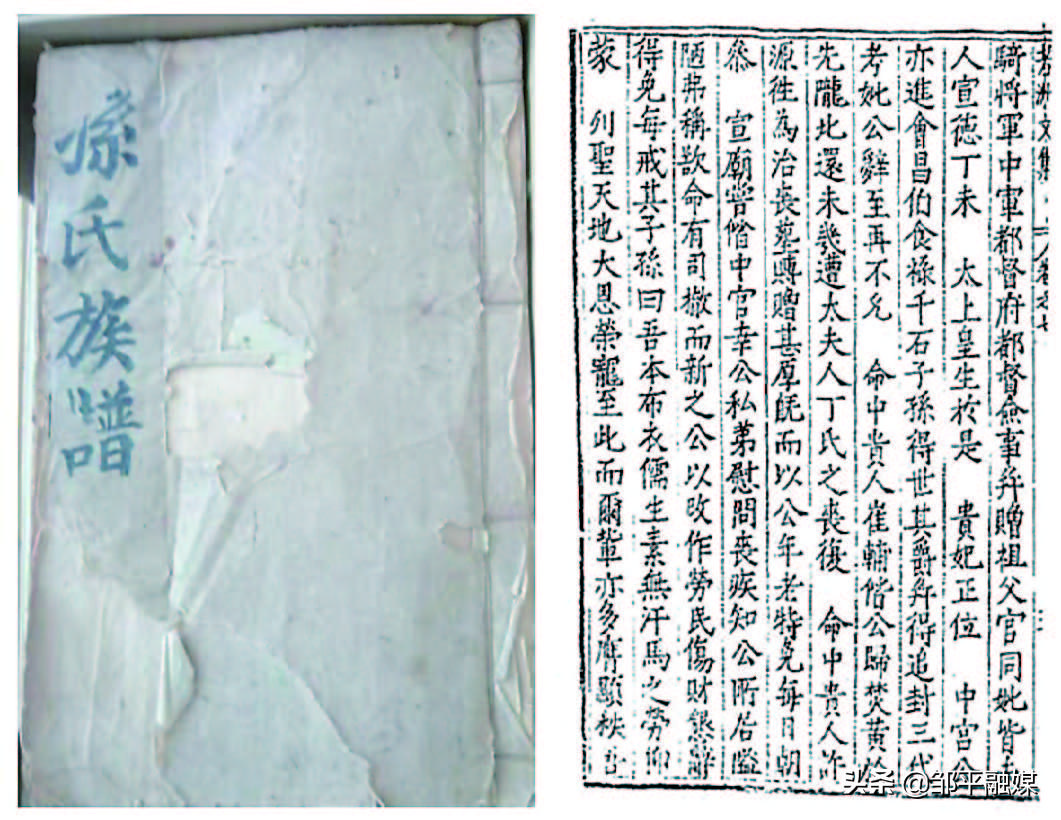 孫氏族譜
芳洲文集 卷之七
騎將軍中軍都督府都督僉事并贈祖父官同妣皆夫
人宣德丁未 太上皇生於是 貴妃正位 中宮公
亦進會昌伯食祿千石子孫得世其爵并得追封三代
考妣公辭至再不允 命中貴人崔輔偕公歸焚黃於
先隴比還未幾遭太夫人丁氏之喪復 命中貴人許
源往為治喪墓賻贈甚厚既而以公年老特免每日朝
叅 宣廟嘗偕中宮幸公私弟慰問喪疾知公所居隘
陋弗稱欲命有司撤而新之公以改作勞民傷財懇辭
得免每戒其子孫曰吾本布衣儒生素無汗馬之勞仰
蒙 列聖天地大恩榮寵至此而爾輩亦多膺顯秩吾
头条 @邹平融媒